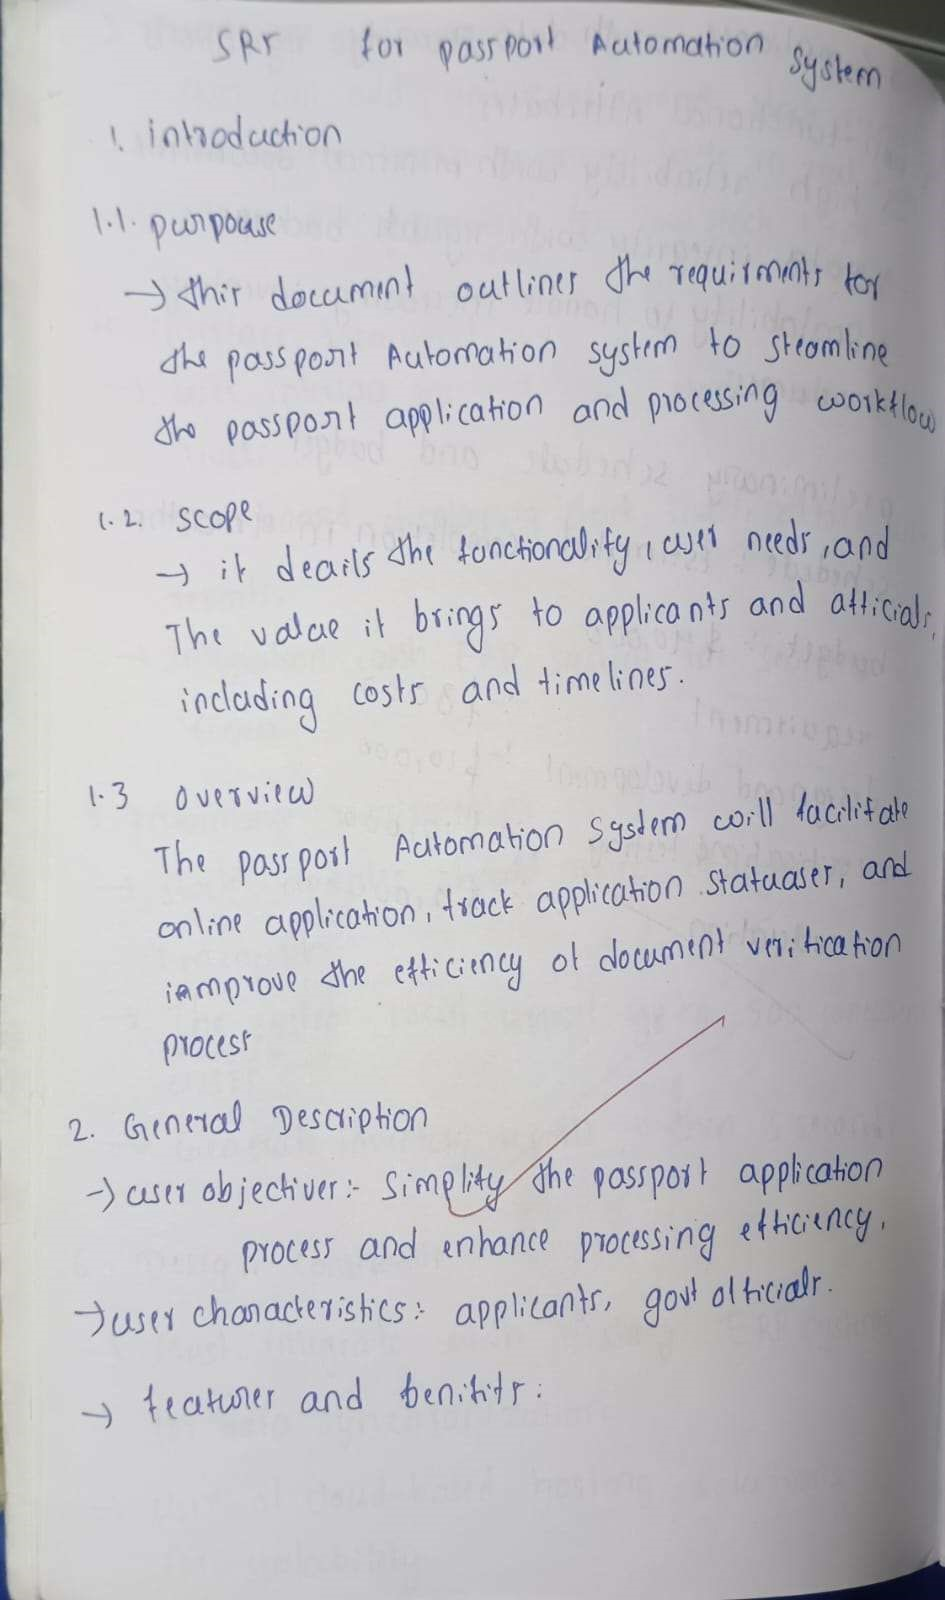 SRS for passport Automation System
1. introduction
1.1. purpouse
→ this document outlines the requirments for
the passport Automation system to steamline
the passport application and processing workflow
1.2. scope
→ it deails the functionality, user needs, and
The value it brings to applicants and officials,
including costs and timelines.
1.3 overview
The passport Automation System will facilitate
online application, track application statuases, and
improve the efficiency of document verification
process
2. General Description
→ user objectives:- Simplify the passport application
process and enhance processing efficiency.
→ user characteristics: applicants, govt officials.
→ features and benifits: